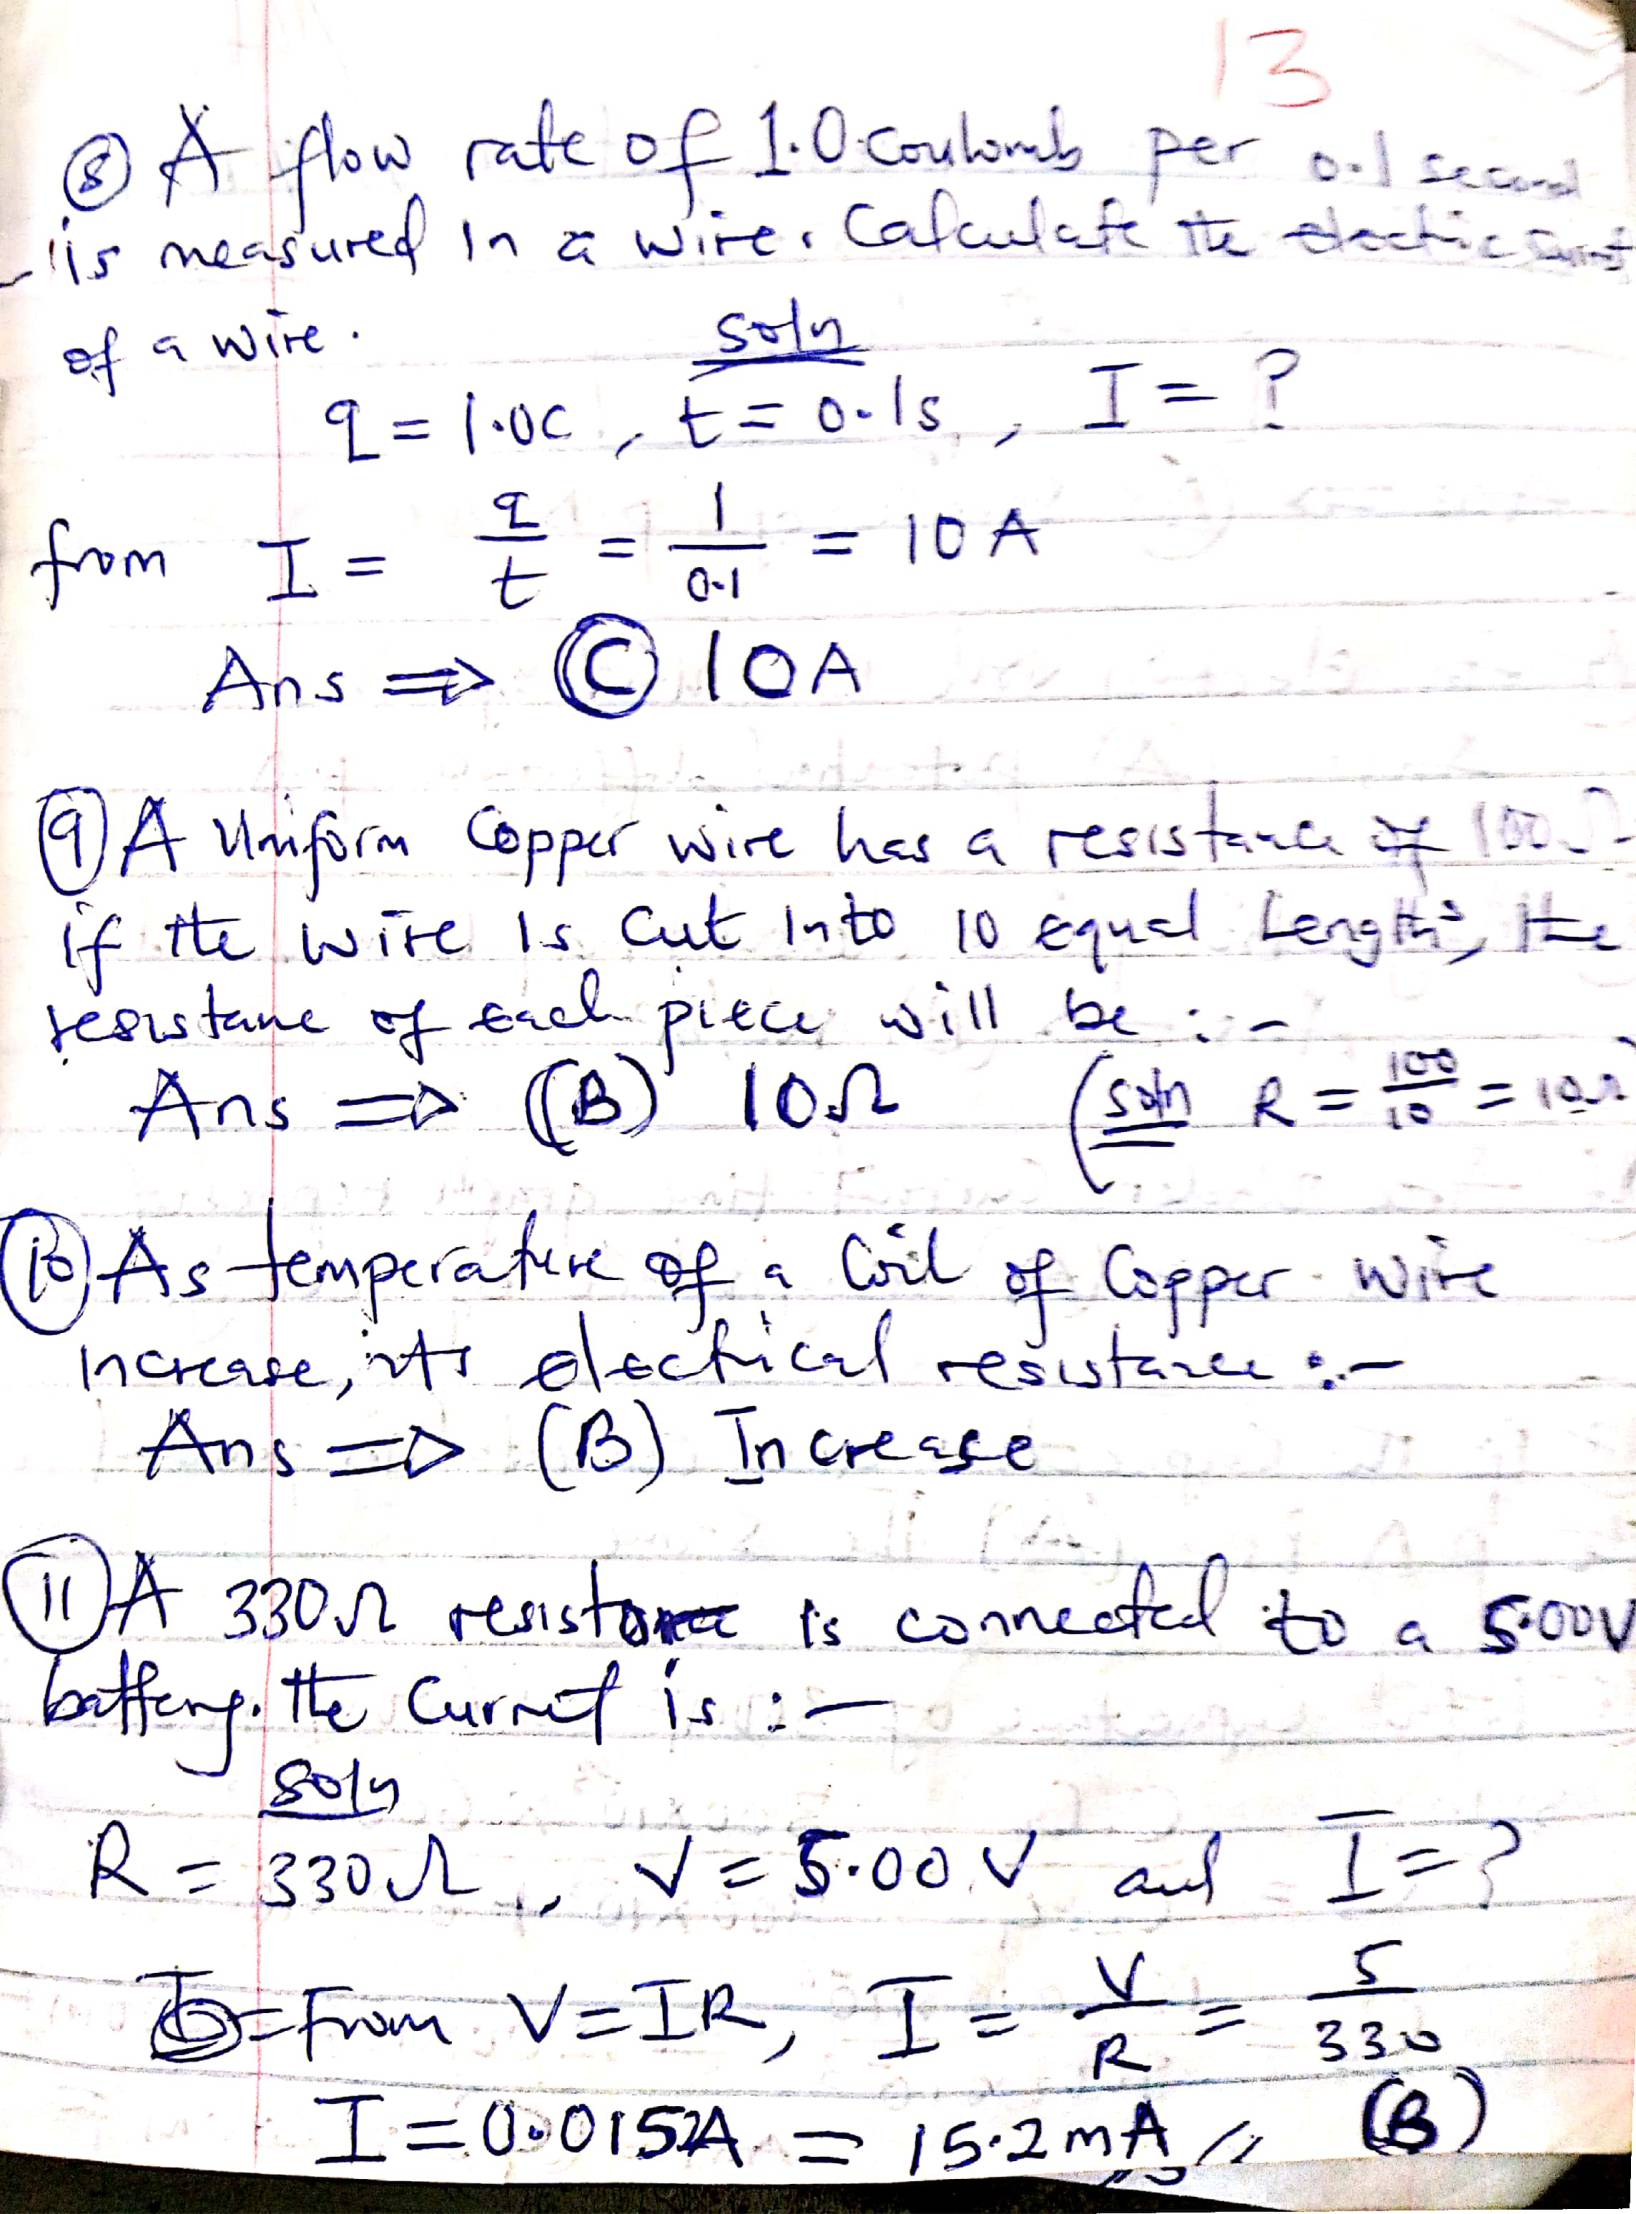 13
⑧ A flow rate of 1.0 coulomb per 0.1 second
is measured in a wire. Calculate the electric current
of a wire.
soln
q = 1.0C , t = 0.1s , I = ?
from I = q/t = 1/0.1 = 10 A
Ans ⇒ Ⓒ 10A
⑨ A Uniform Copper wire has a resistance of 100Ω
if the wire Is Cut Into 10 equal Lengths, the
resistane of each piece will be :-
Ans ⇒ (B) 10Ω (soln R = 100/10 = 10Ω
⑩ As temperature of a Coil of Copper wire
increase, its electrical resistance :-
Ans ⇒ (B) Increase
⑪ A 330Ω resistance is connected to a 5.00V
battery. the Current is :-
soln
R = 330Ω , V = 5.00 V and I = ?
From V=IR, I = V/R = 5/330
I = 0.0152A = 15.2 mA // (B)